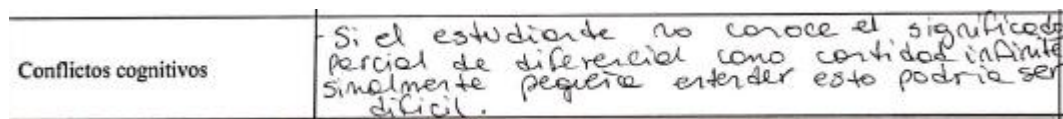 Conflictos cognitivos
- Si el estudiante no conoce el significado
parcial de diferencial como cantidad infinite
simalmente pequeña entender esto podría ser
difícil.